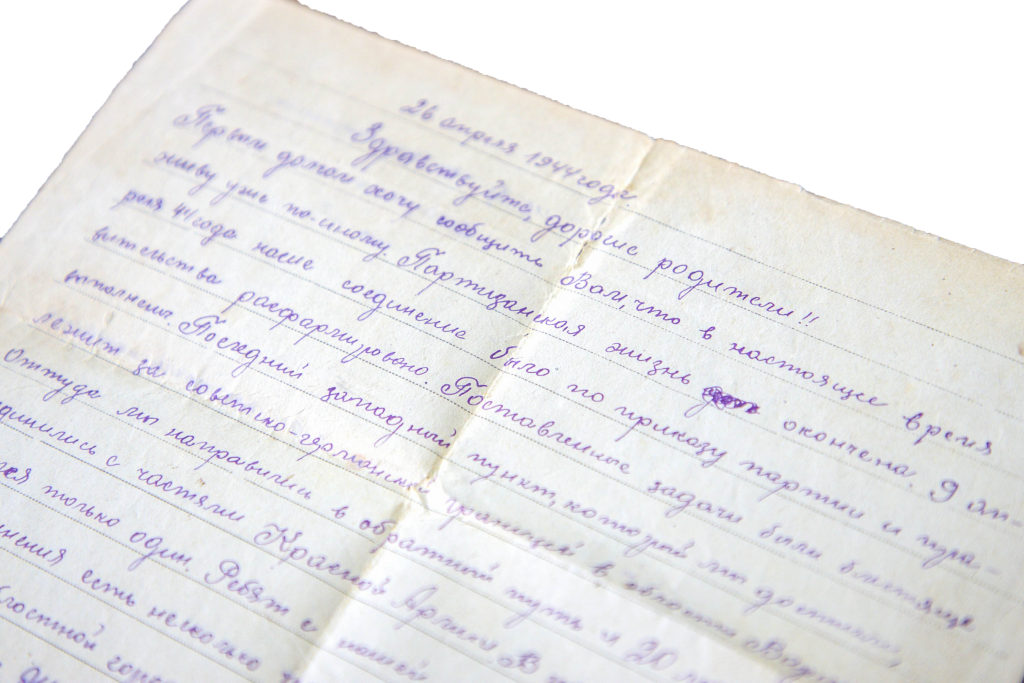 26 апреля 1944 года.
Здравствуйте, дорогие родители!!
Первым долгом хочу сообщить Вам, что в настоящее время
живу уже по-иному. Партизанская жизнь окончена. 9 ап-
реля 44 года наше соединение было по приказу партии и пра-
вительства расформировано. Поставленные задачи были блестяще
выполнены. Последний западный пункт, который мы достигли,
лежит за советско-германской границей в области
Оттуда мы направились в обратный путь и 20
единились с частями Красной Армии. В
только один. Ребят с нашей
есть несколько